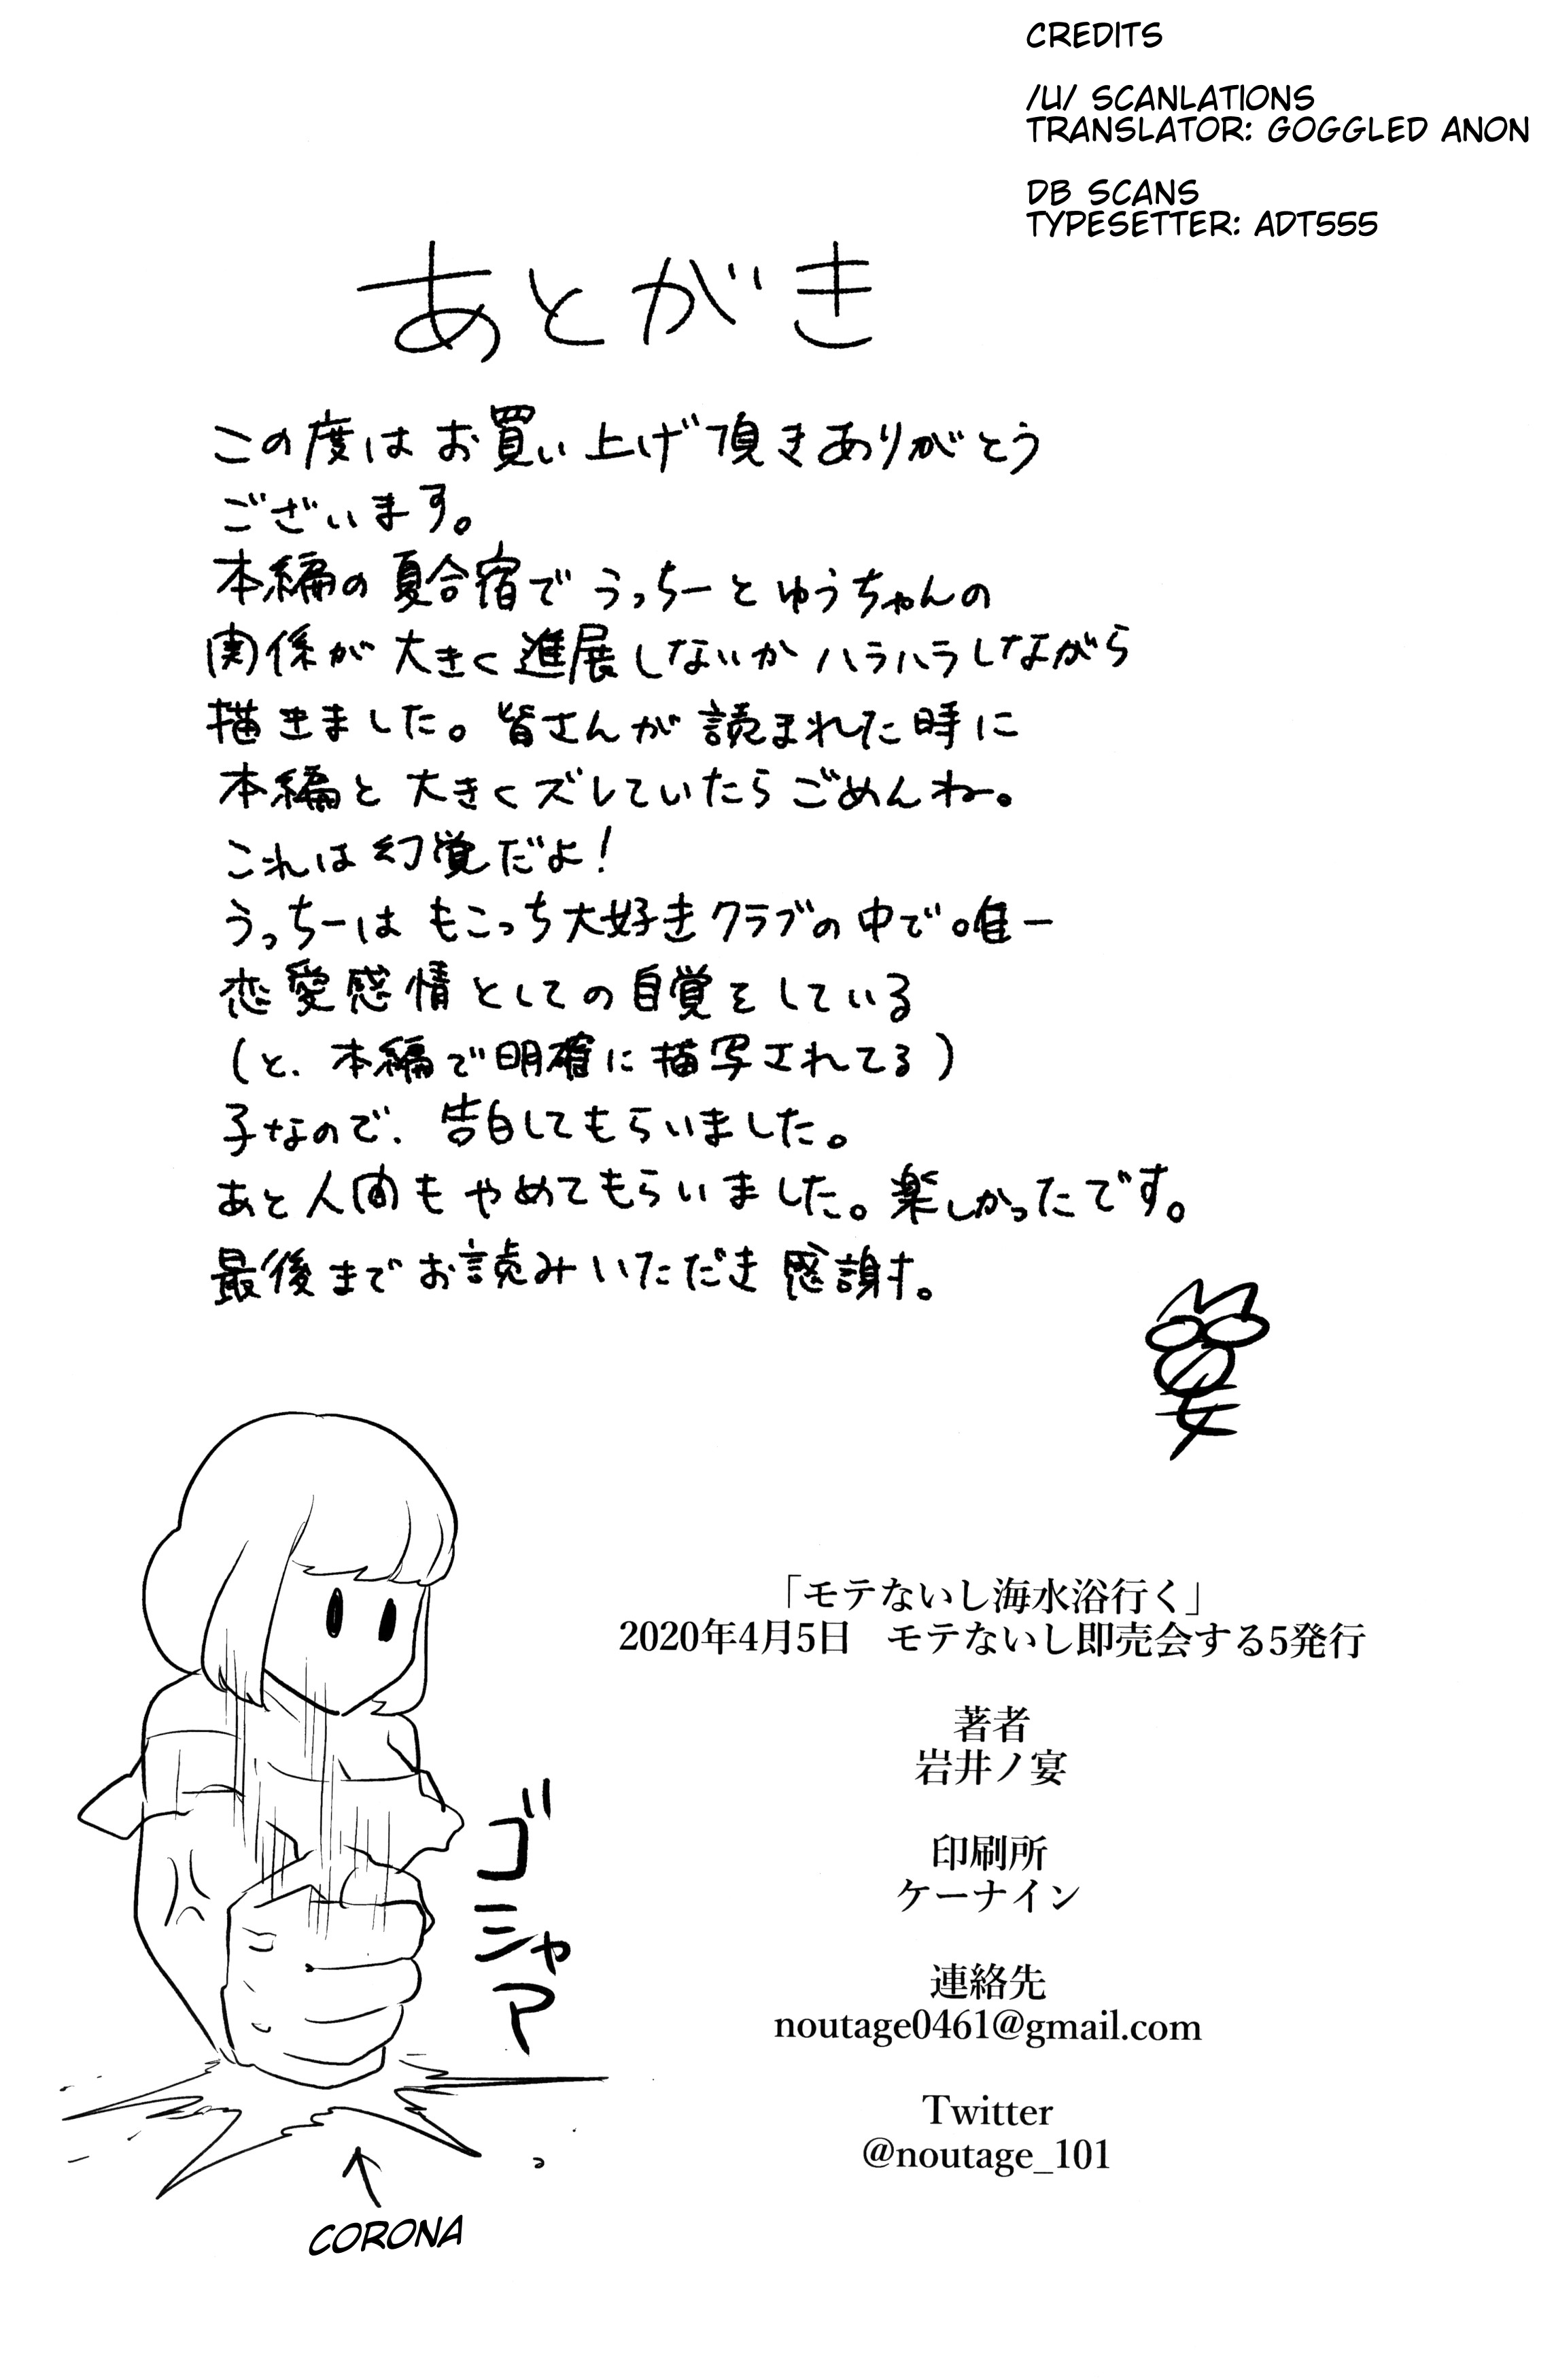 CREDITS
/U/ SCANLATIONS
TRANSLATOR: GOGGLED ANON
DB SCANS
TYPESETTER: ADT555
あとがき
この度はお買い上げ頂きありがとう
ございます。
本編の夏合宿でうっちーとゆうちゃんの
関係が大きく進展しないかハラハラしながら
描きました。皆さんが読まれた時に
本編と大きくズレていたらごめんね。
これは幻覚だよ!
うっちーはもこっち大好きクラブの中で唯一
恋愛感情としての自覚をしている
(と、本編で明確に描写されてる)
子なので、告白してもらいました。
あと人間もやめてもらいました。楽しかったです。
最後までお読みいただき感謝す。
「モテないし海水浴行く」
2020年4月5日 モテないし即売会する5発行
著者
岩井ノ宴
印刷所
ケーナイン
連絡先
noutage0461@gmail.com
Twitter
@noutage_101
ゴシャア
CORONA